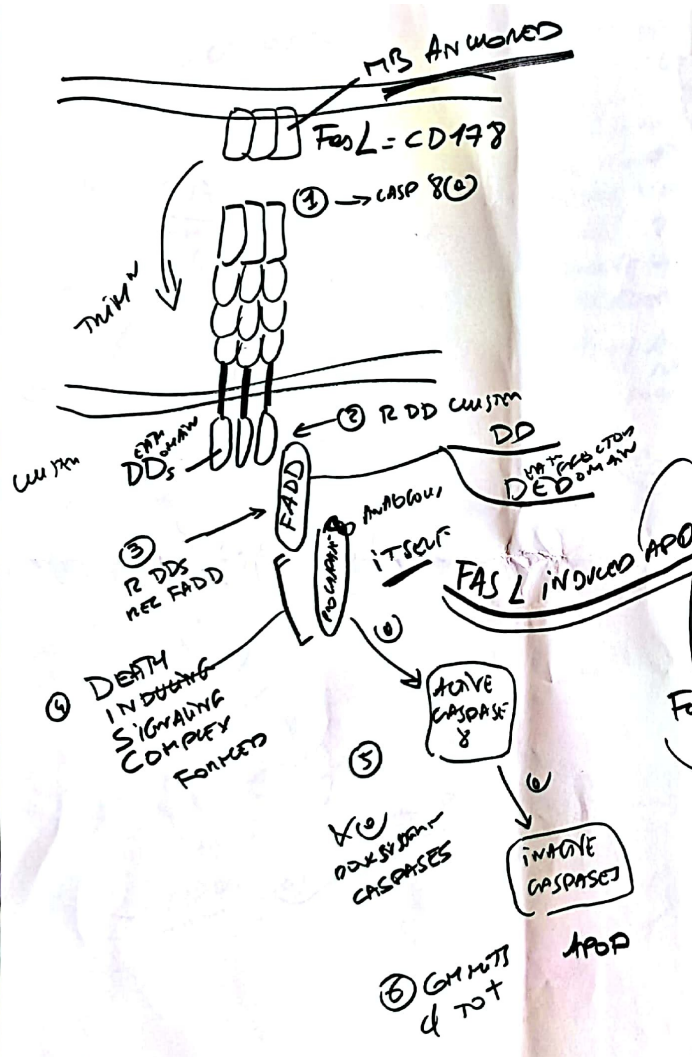 MB ANCHORED
FasL = CD178
① → CASP 8
TRIMⁿ
② R DD CLUSTER
DEATH DOMAIN
DDs
CLUSTER
DD
DEATH EFFECTOR DOMAIN
DED
FADD
③
R DDs
REC FADD
ITSELF
FAS L INDUCED APO
④ DEATH
INDUCING
SIGNALING
COMPLEX
FORMED
ACTIVE
CASPASE
8
⑤
DOWNSTREAM
CASPASES
INACTIVE
CASPASES
APOP
⑥ COMMITS